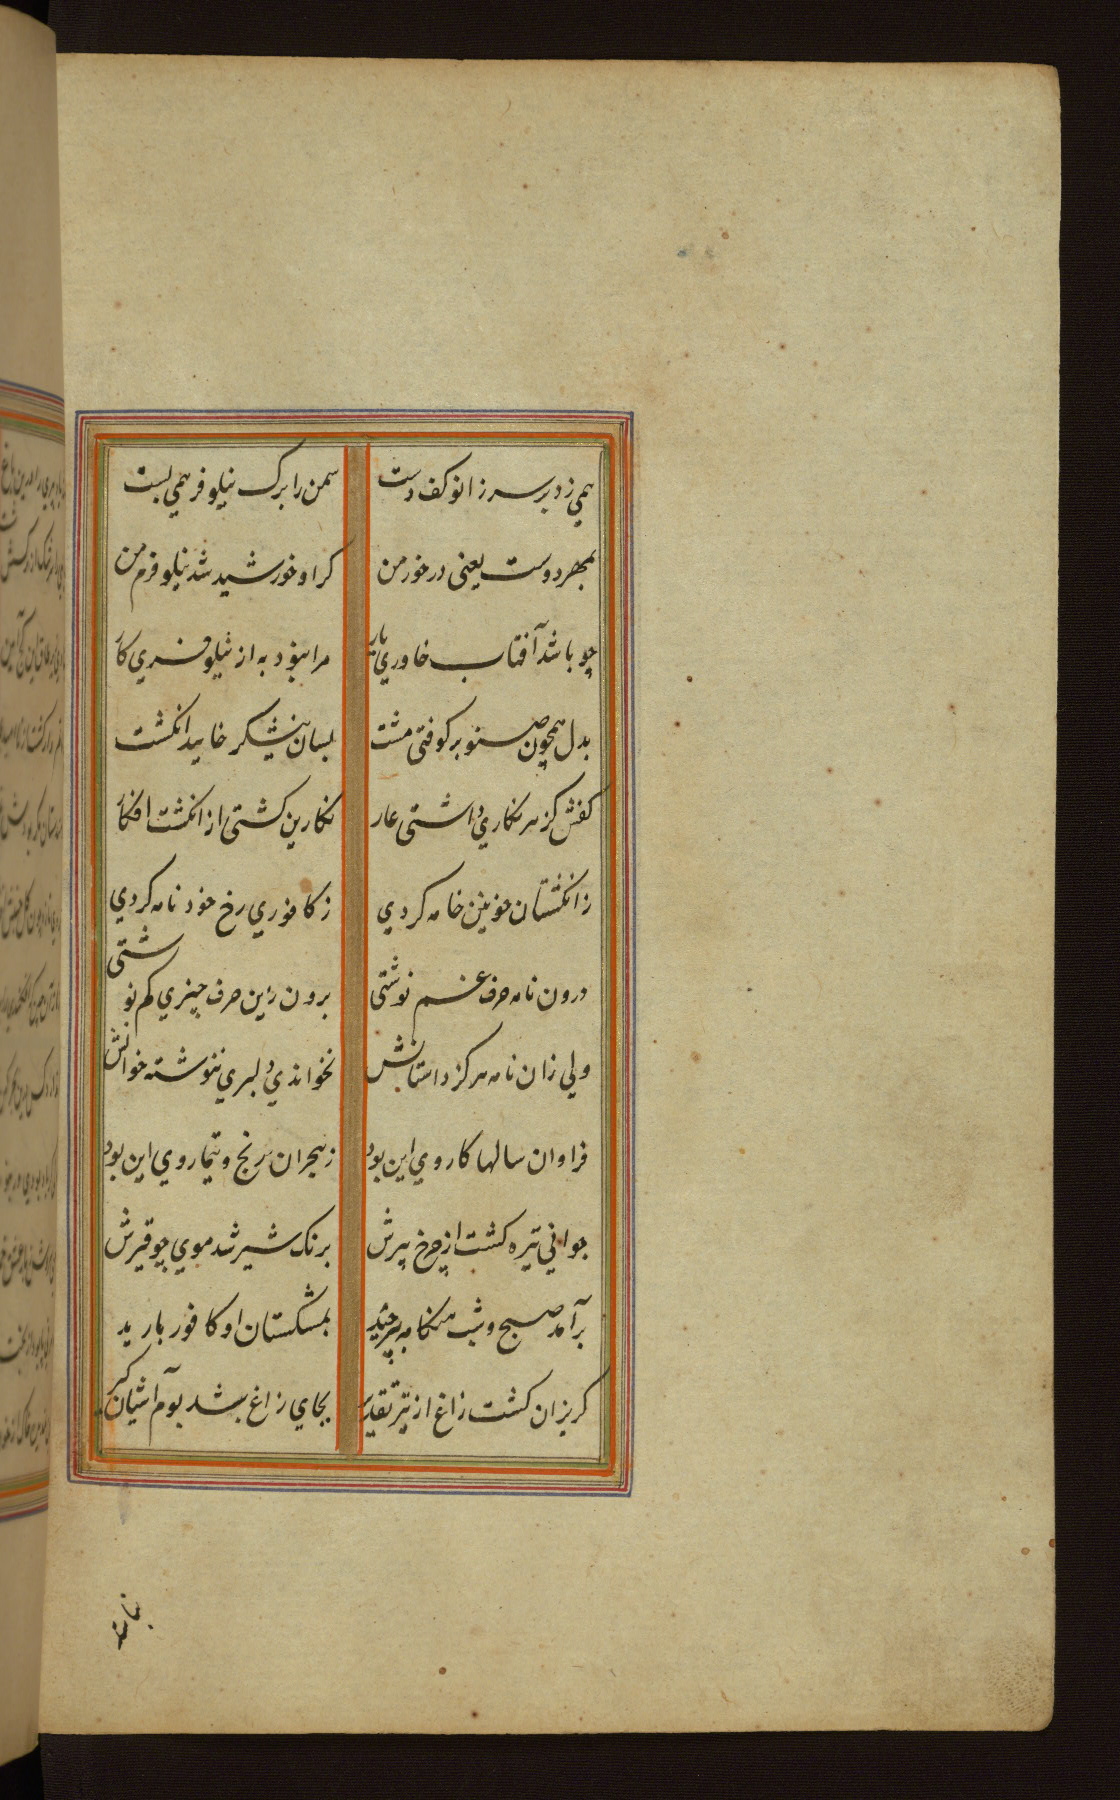 همي زد بر سر زانو کف دست سمن را برک نیلوفر همي بست
بمهر دوست یعنی در خور من کر او خورشید شد نیلوفرم من
چو باشد آفتاب خاوري یار مرا نبود به از نیلوفري کار
بدل همچون صنوبر کوفتی مشت بسان نیشکر خایید انکشت
کفش کز هر نکاري داشتی عار نکارین کشتی از انکشت افکار
ز انکشتان خونین خامه کردي ز کافوري رخ خود نامه کردي
درون نامه حرف غم نوشتی برون زین حرف چیزي کم نوشتی
ولي زان نامه هرکز داستانش نخواندي دلبري ننوشته خوانش
فراوان سالها کار وي این بود ز هجران رنج و تیمار وي این بود
جواني تیره کشت از چرخ پیرش برنک شیر شد موي چو قیرش
برآمد صبح و شب هنکامه برچید بمشکستان او کافور بارید
کریزان کشت زاغ از تیر تقدیر بجاي زاغ شد بوم آشیان کیر